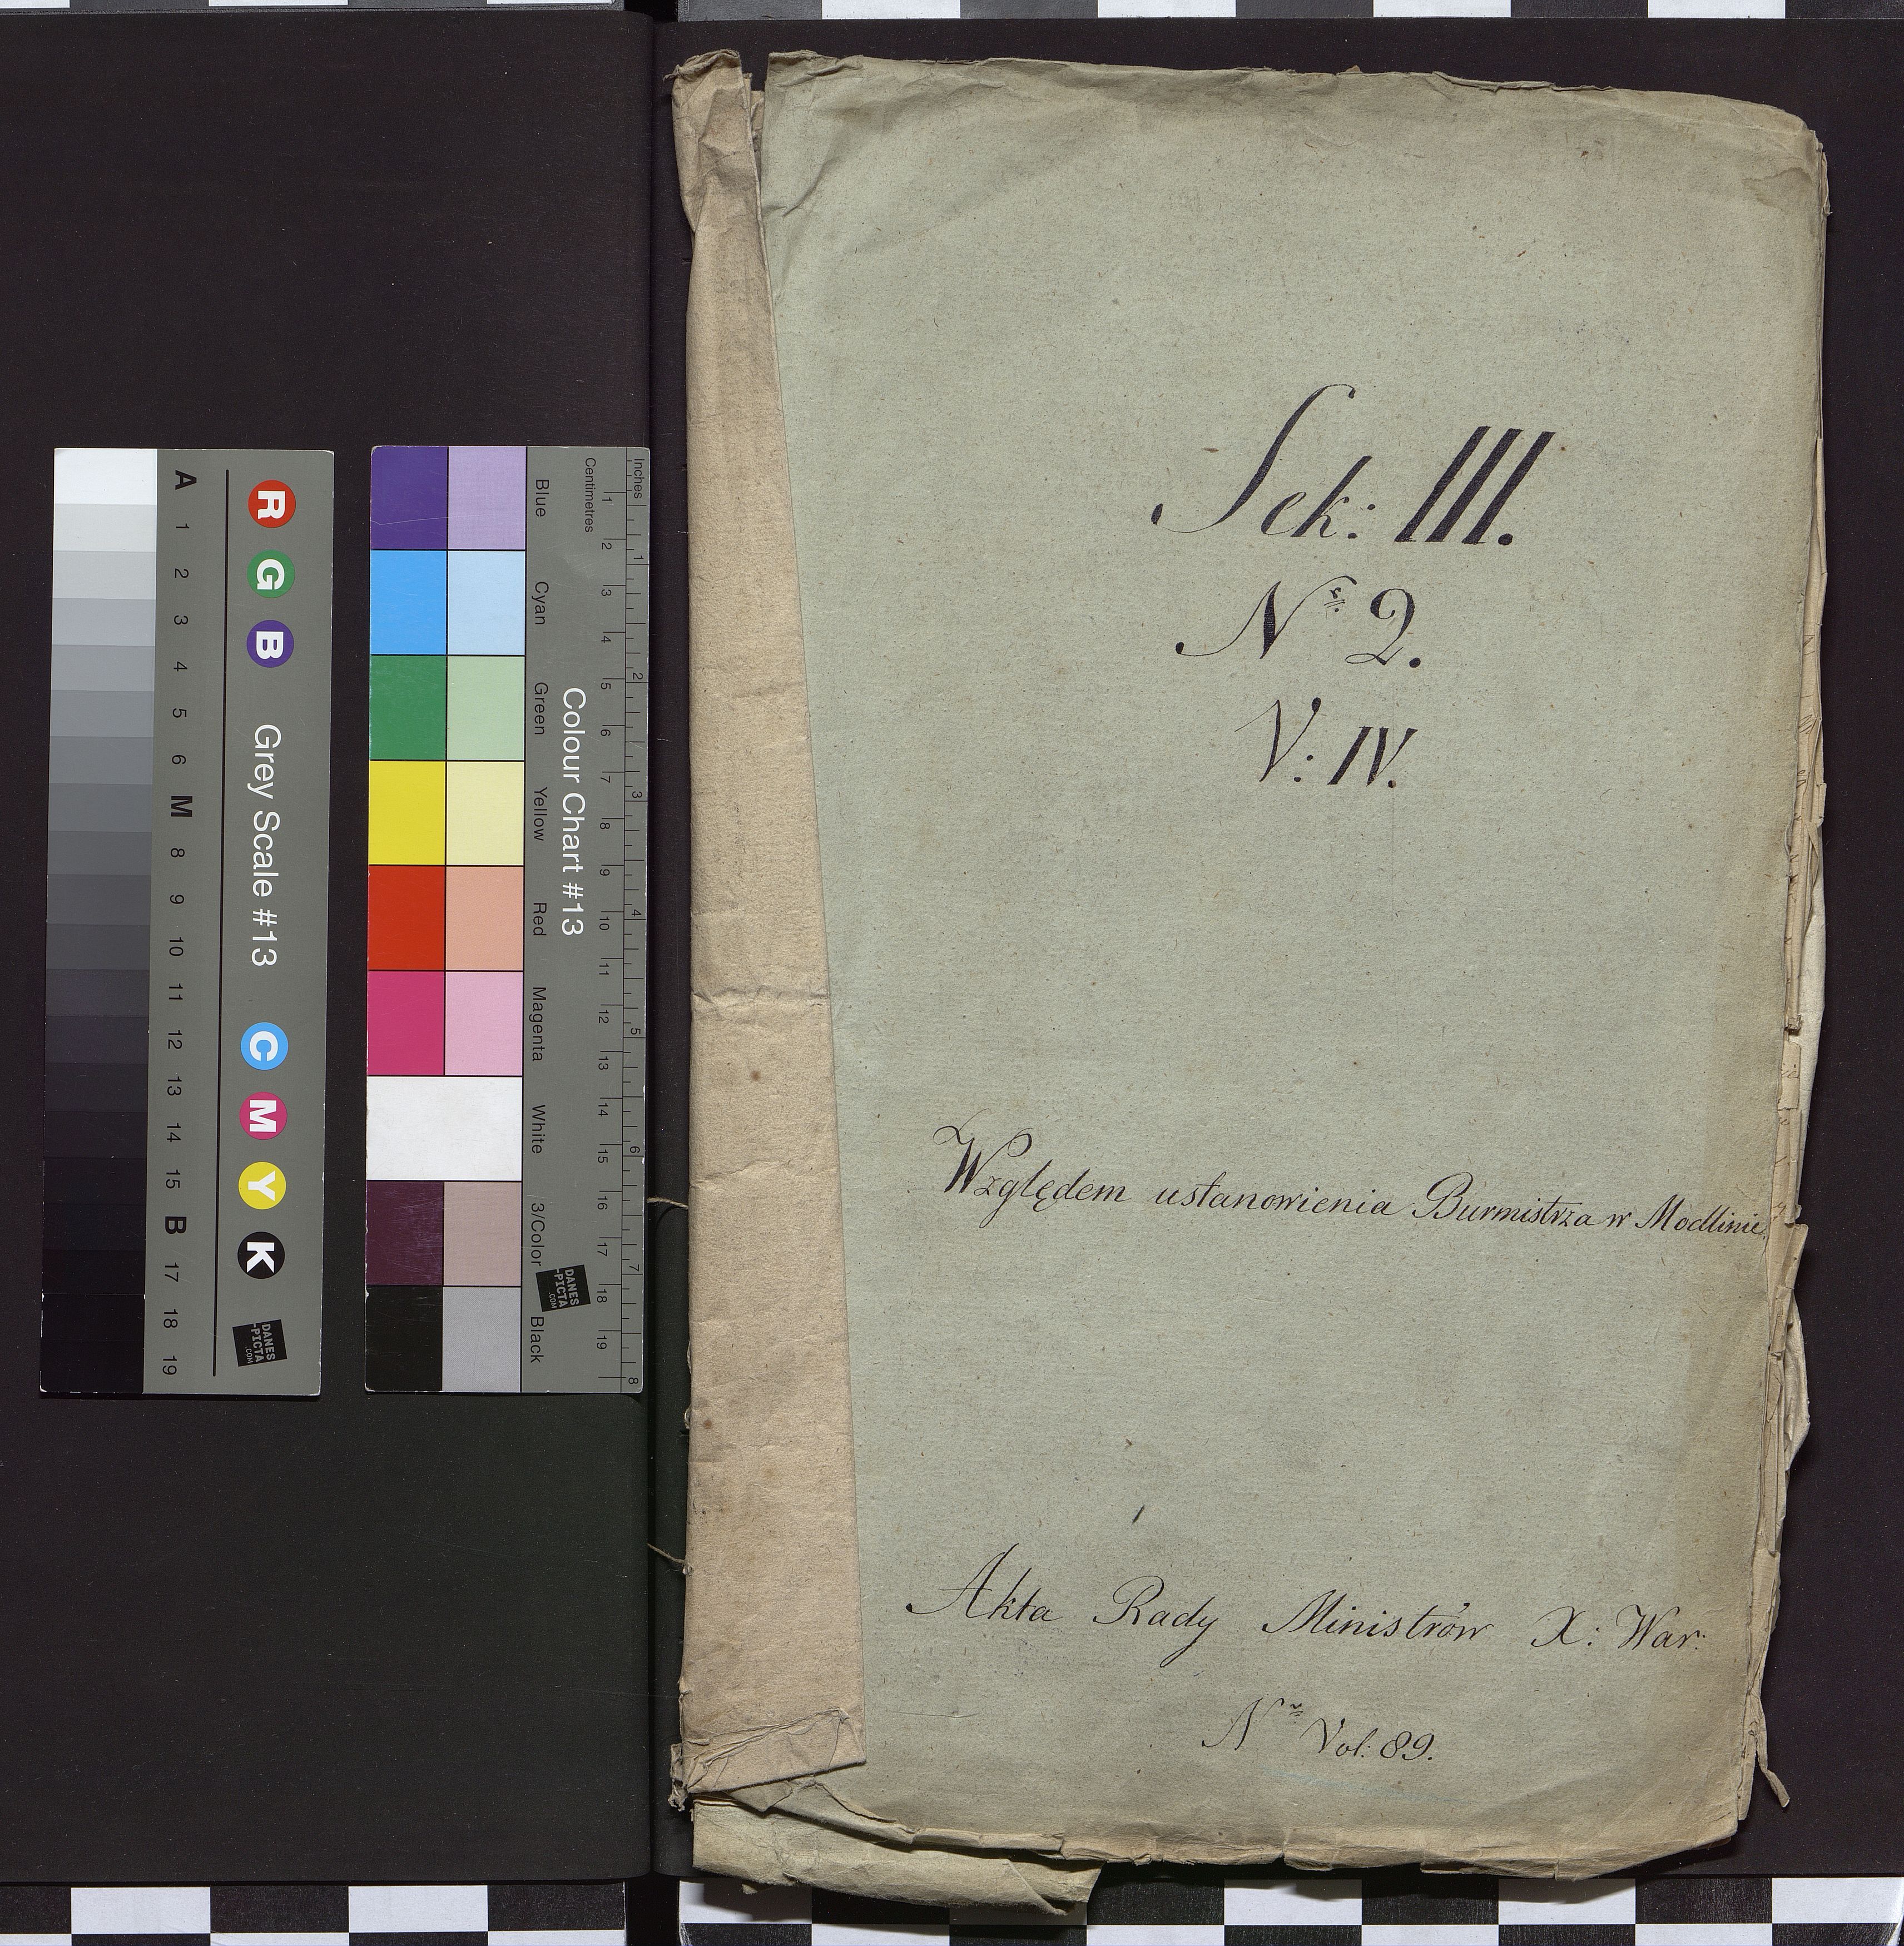 Sek: III.
Nr 2.
V: IV.
Względem ustanowienia Burmistrza w Modlinie.
Akta Rady Ministrów X: War:
Nr Vol: 89.
A 1 2 3 4 5 6 M 8 9 10 11 12 13 14 15 B 17 18 19
R G B Grey Scale #13 C M Y K
DANES
-PICTA
.COM
Blue Cyan Green Yellow Red Magenta White 3/Color Black
Colour Chart #13
DANES
-PICTA
.COM
Centimetres 1 2 3 4 5 6 7 8 9 10 11 12 13 14 15 16 17 18 19
Inches 1 2 3 4 5 6 7 8